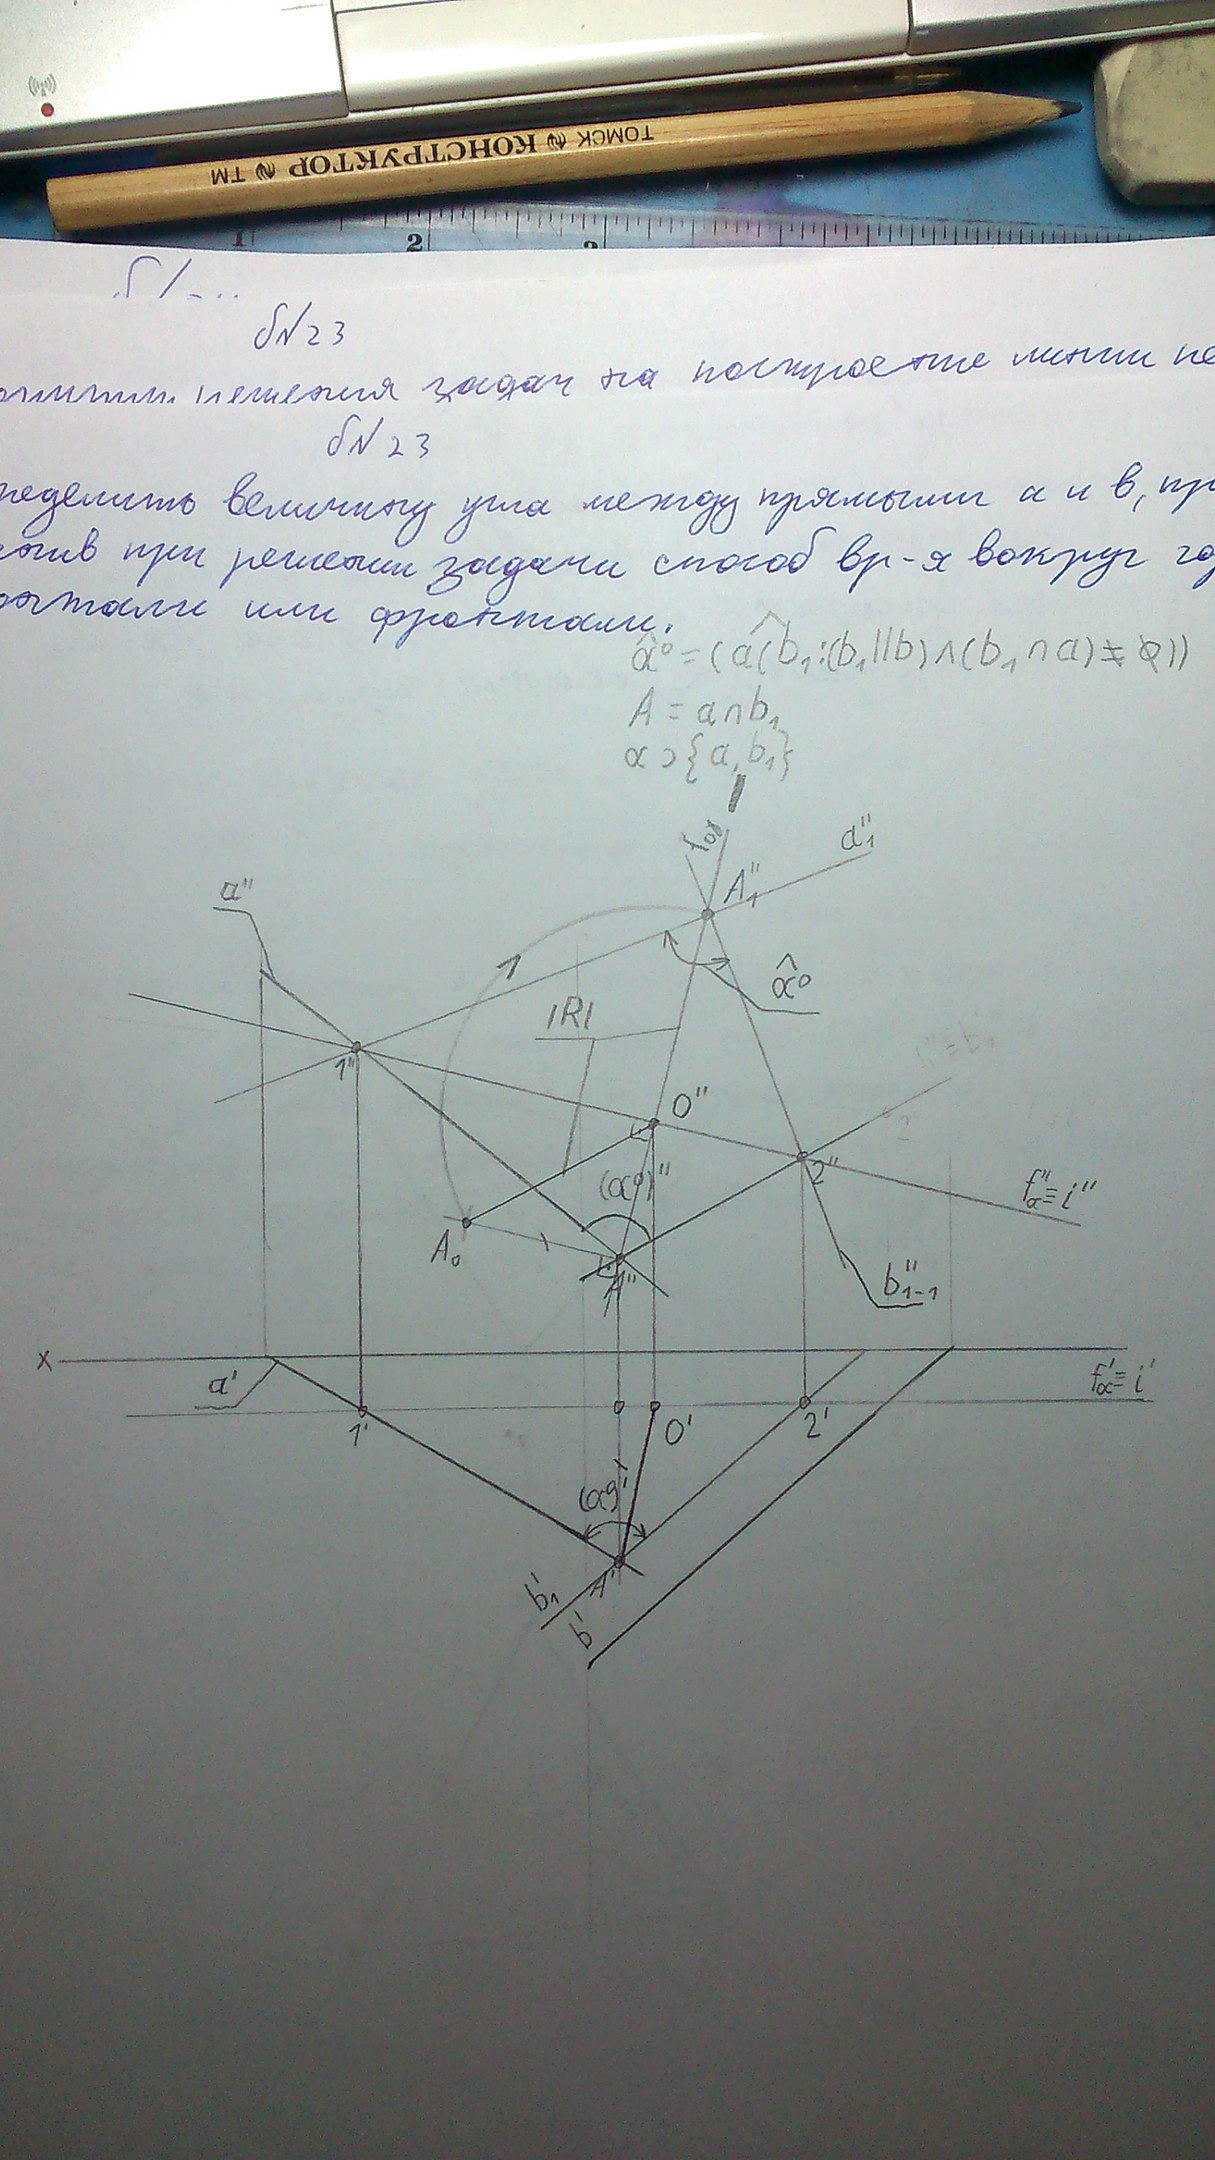 ТОМСК КОНСТРУКТОР ТМ
1 2 3
бN23
решения задач на построение линии пе
бN23
ределить величину угла между прямыми а и в, пр
при решении задачи способ вр-я вокруг го
или фронтали.
α̂° = (a^b₁:(b₁||b)∧(b₁∩a)≠∅))
A = a∩b₁
α⊃{a,b₁}
f₀α
a₁''
A₁''
a''
α̂°
|R|
1''
O''
2''
(α°)''
fα''≡i''
A₀
A''
b₁₋₁''
x
a'
fα'≡i'
1'
O'
2'
(α°)'
A'
b₁'
b'